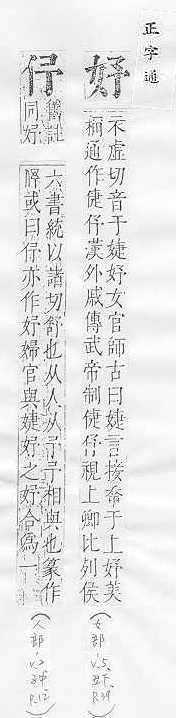 正字通
妤 云虛切音于婕妤女官師古曰婕言接幸于上妤美
稱通作倢伃漢外戚傳武帝制倢伃視上卿比列侯
(女部 V.5, 丑下, P.39)
伃 舊註同妤
六書統以諸切舒也从人从予予相與也篆作
解或曰伃亦作妤婦官與婕妤之妤合爲一
(人部 V.2 子中 P.12)